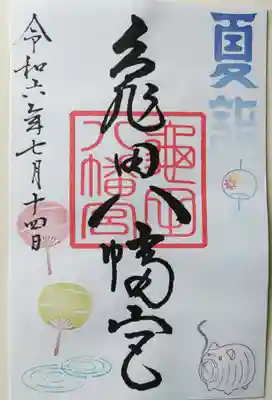 夏詣
亀田八幡宮
龜田八幡宮
令和六年七月十四日